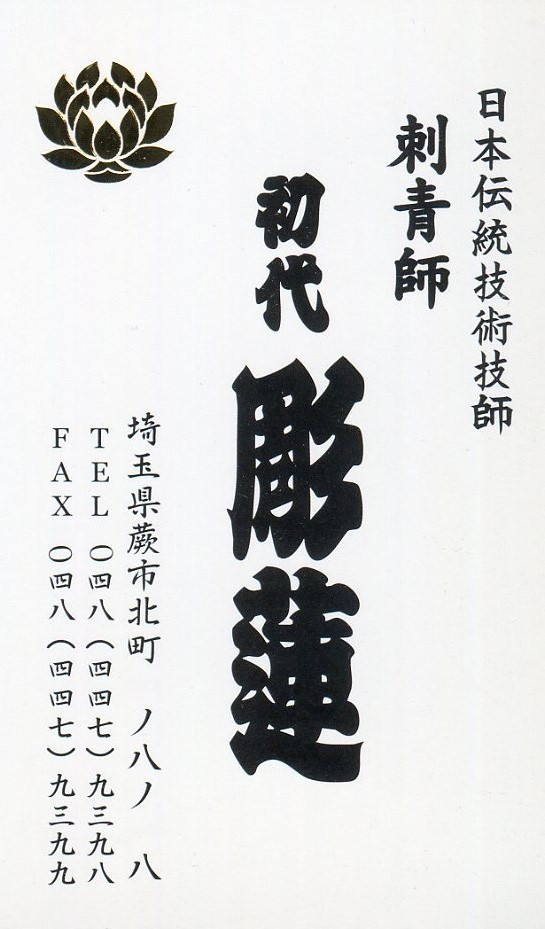 日本伝統技術技師
刺青師
初代
彫蓮
埼玉県蕨市北町 ノ八ノ 八
TEL 〇四八(四四七)九三九八
FAX 〇四八(四四七)九三九九